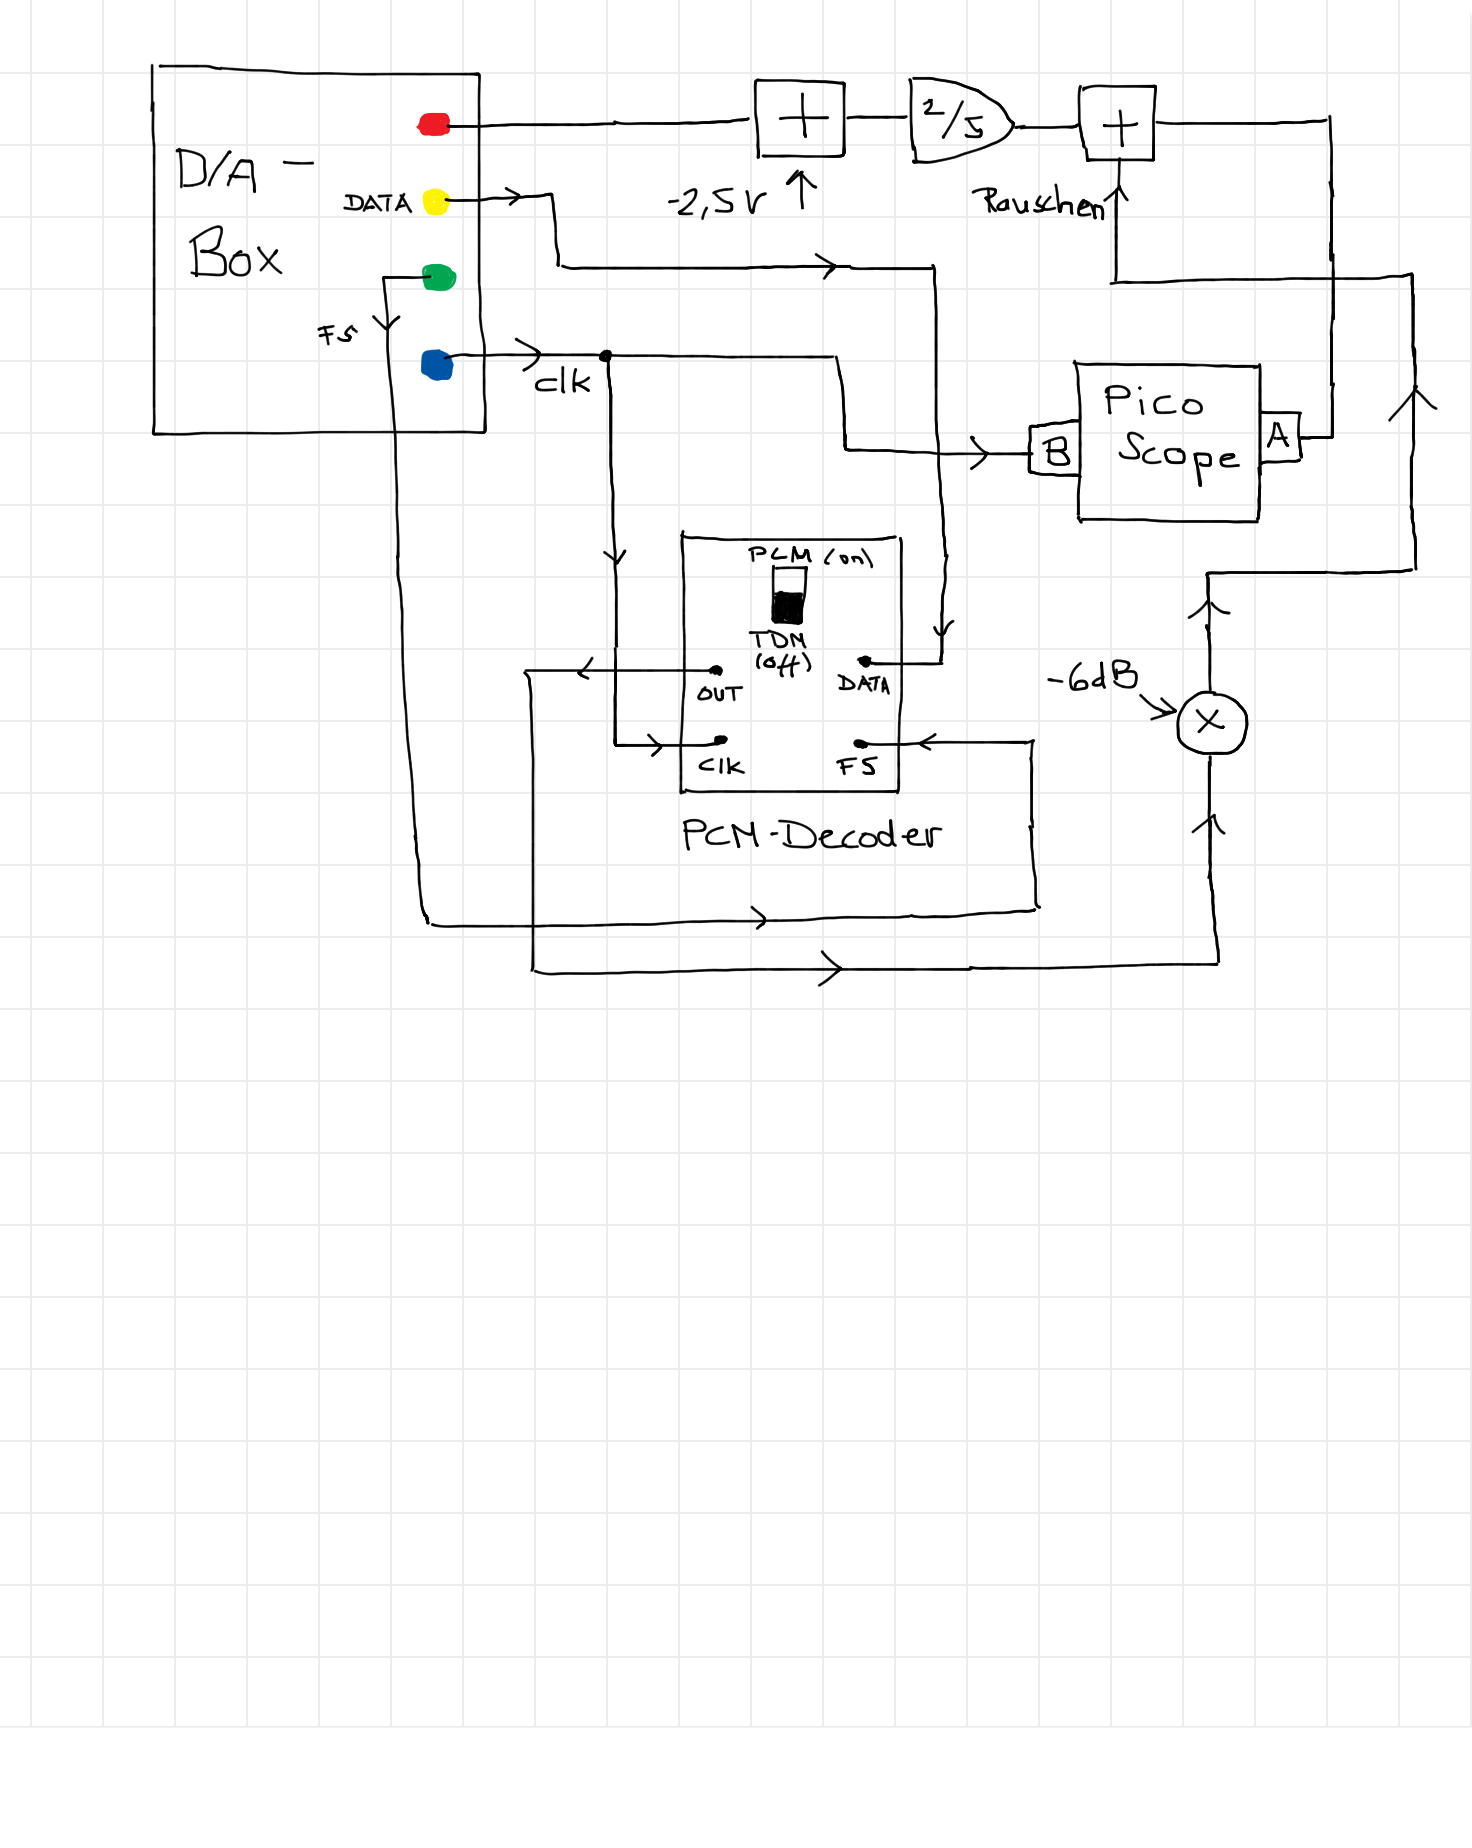 D/A-
Box
DATA
FS
clk
+
-2,5V
2/5
+
Rauschen
Pico
Scope
B
A
PCM (on)
TDM
(off)
OUT
DATA
clk
FS
PCM-Decoder
-6dB
X